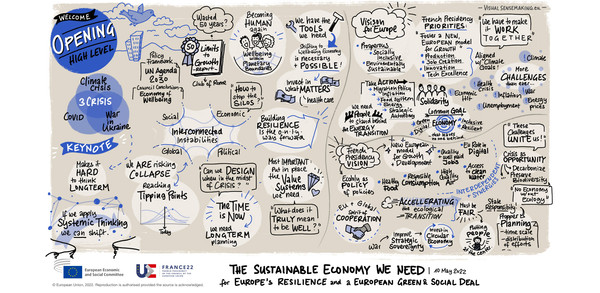 VISUALSENSEMAKING.EU
WELCOME
OPENING
HIGH LEVEL
CLIMATE CRISIS
3 CRISIS
COVID
WAR in UKRAINE
KEYNOTE
Makes it
HARD
to think
LONGTERM
If we apply
Systemic Thinking
we can shift.
Policy
Framework
UN AGENDA
2030
Council Conclusions
Economy of
Wellbeing
Wasted
50 years?
50
Limits
to
Growth
REPORT
Club of Rome
Becoming
HUMAN
again
Wellbeing
within
Planetary
Boundaries
How to
stop the
SILOS
Social
Economic
Interconnected
Instabilities
Global
Political
We ARE risking
COLLAPSE
Reaching
Tipping
Points
Today
Can we DESIGN
when in the midst
of CRISIS?
The
TIME is
NOW
we need
LONGTERM
planning
We have the
TOOLS
we need
Shifting to
Wellbeing Economy
is necessary
& POSSIBLE!
Invest in
what MATTERS
health care
Building
RESILIENCE
is the only
way forward
Most IMPORTANT
Put in place
the
Value
Systems
we need
What does it
TRULY mean to
be WELL?
Vision for
Europe
Prosperous
Social &
Inclusive
Environmentally
Sustainable
TAKE ACTION
Migration Policy
Inflation
Food Systems
Energy
Strategic
Autonomy
We need
PEOPLE
to
the ENERGY
TRANSITION
French
Presidency
VISION
Ecology as
POLICY
of policies
EU + Global
Spirit of
COOPERATION
War
French Presidency
PRIORITIES
Foster a NEW,
EUROPEAN model
for GROWTH
Production
Job Creation
Innovation
Tech Excellence
Economic
Solidarity
Common Goal
ECONOMY
Green
Digital
Inclusive
Resilient
New European
model for
Growth &
Development
Quality
well paid
Jobs
EU Role in
Digital
Healthy
FOOD
Responsible
CONSUMPTION
High
Quality
Access to
clean
water
INTERDEPENDENT
ACCELERATING
the ecological
TRANSITION
Improve
Strategic
Sovereignty
Most
Circular
Economy
MUST BE
FAIR
Putting
PEOPLE
at the center
We have to make
it WORK
TOGETHER
Aligned w/
Climate
Goals!
More
CHALLENGES
than ever
Climate
Health
Crisis
War
Inflation
Energy
prices
Unemployment
These
Challenges
UNITE us!
CRISIS as
OPPORTUNITY
Decarbonize
Preserve
Biodiversity
No Economy
without
Ecology
State
Responsibility
Proper
Planning
time scale
distribution
of efforts
European Economic
and Social Committee
FRANCE22
© European Union, 2022. Reproduction is authorised provided the source is acknowledged.
THE SUSTAINABLE ECONOMY WE NEED | 10 May 2022
for EUROPE'S RESILIENCE and a EUROPEAN GREEN & SOCIAL DEAL